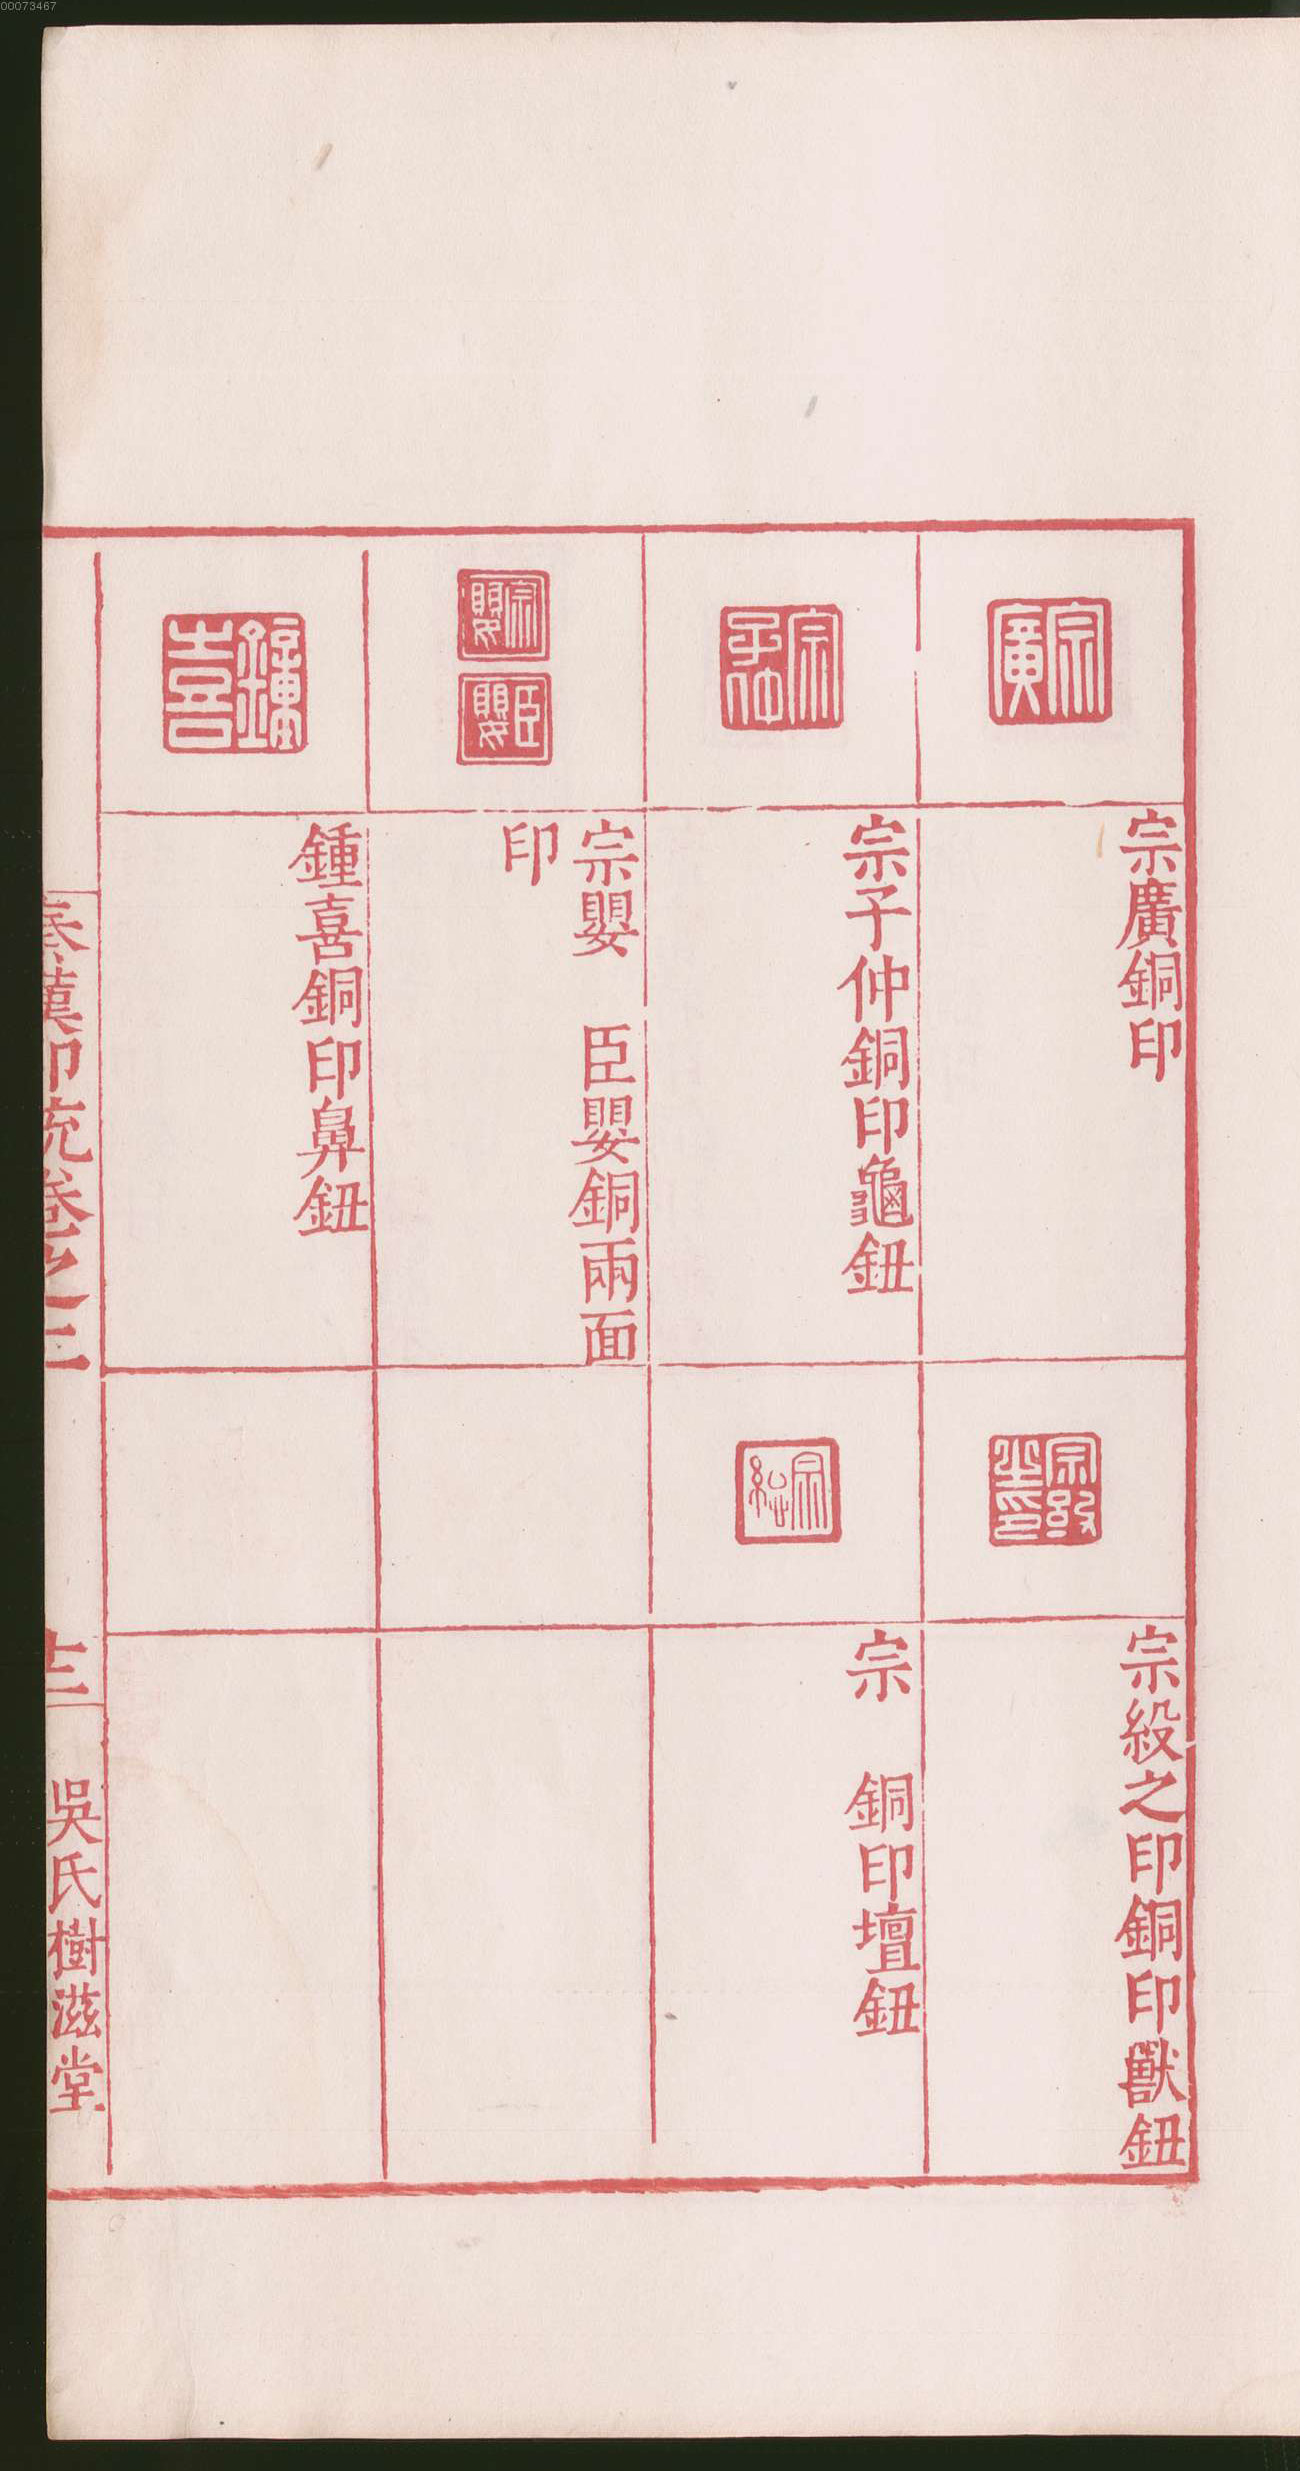 00073467
宗廣
宗廣銅印
宗子仲
宗子仲銅印龜鈕
宗嬰
臣嬰
宗嬰　臣嬰銅兩面
印
鍾喜
鍾喜銅印鼻鈕
宗綬之印銅印獸鈕
宗
宗　銅印壇鈕
秦漢印統卷之三
十三
吳氏樹滋堂